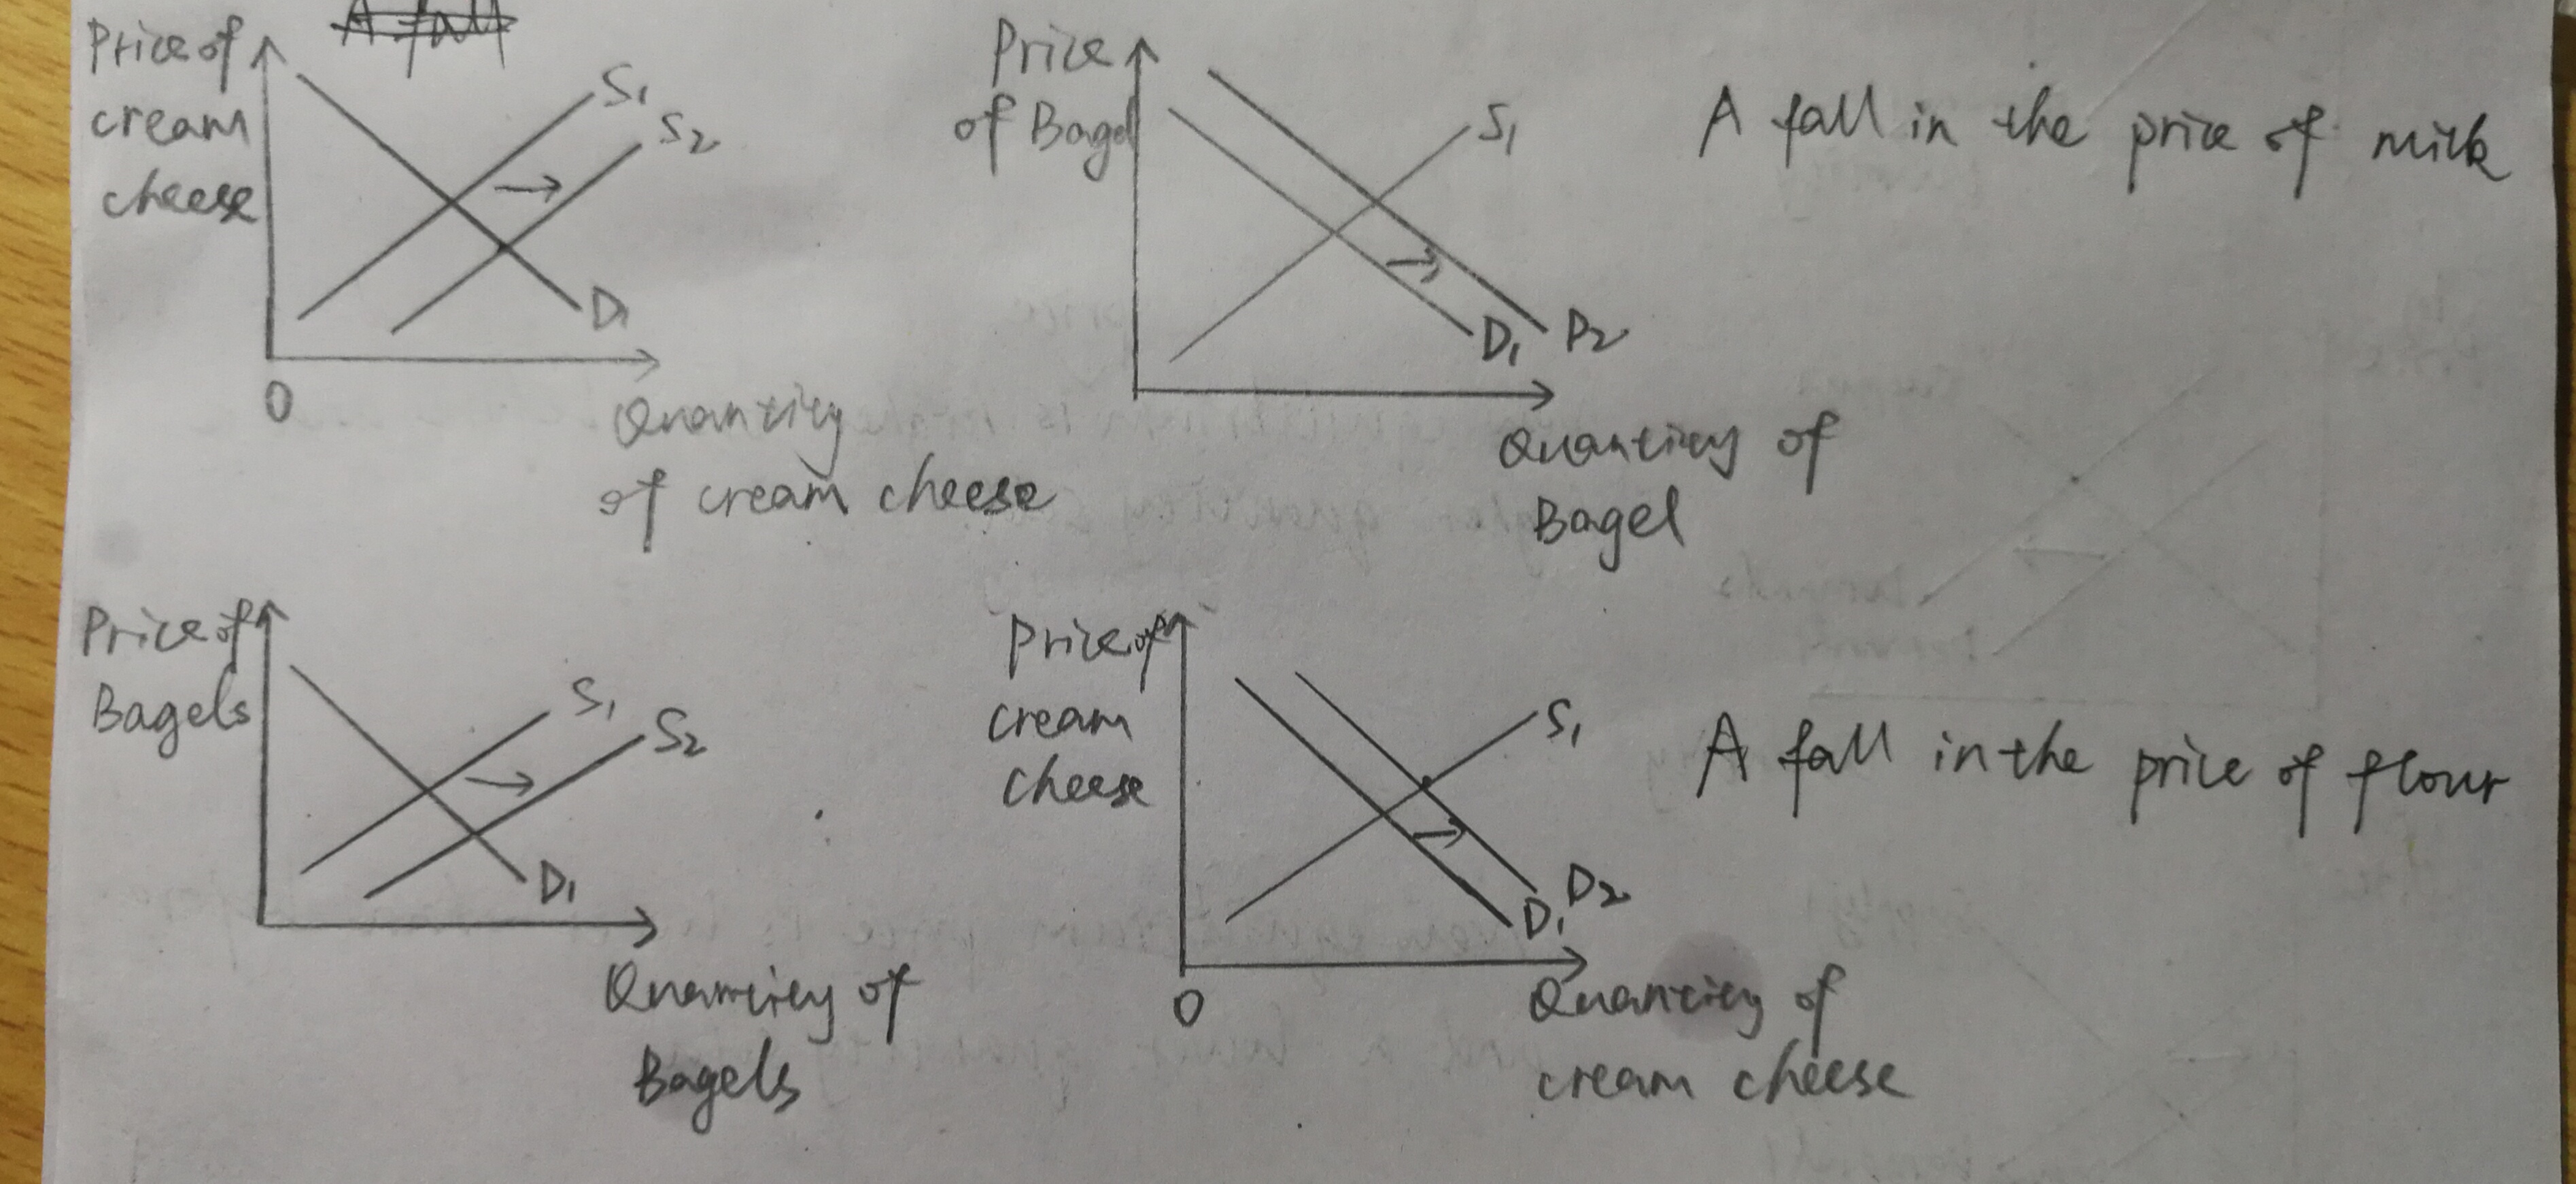 A fall
Price of
cream
cheese
S1
S2
D1
0
Quantity
of cream cheese
Price
of Bagel
S1
D1
D2
Quantity of
Bagel
A fall in the price of milk
Price of
Bagels
S1
S2
D1
Quantity of
Bagels
Price of
cream
cheese
S1
D2
D1
0
Quantity of
cream cheese
A fall in the price of flour